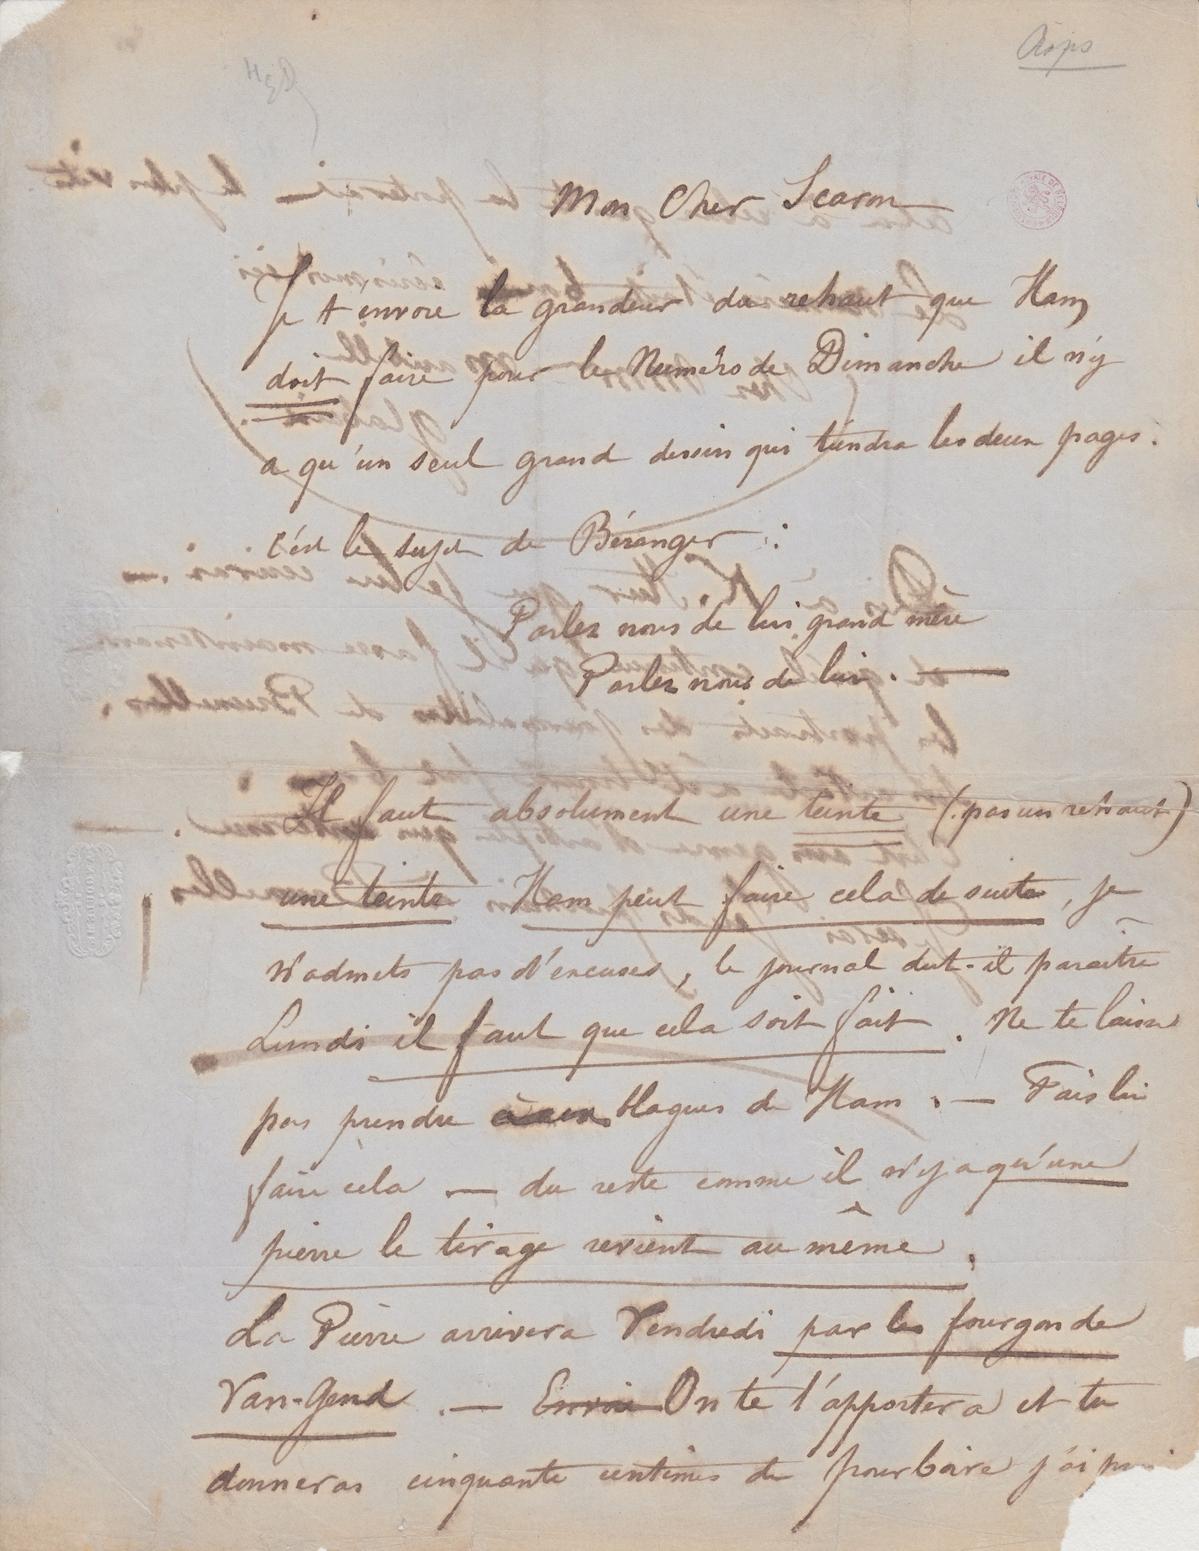 Rops
Mon Cher Scaron
Je t'envoie la grandeur du rehaut que Ham
doit faire pour le Numéro de Dimanche il n'y
a qu'un seul grand dessin qui tiendra les deux pages.
c'est le sujet de Béranger :
Parlez nous de lui grand mère
Parlez nous de lui. —
Il faut absolument une teinte (pas un rehaut)
une teinte Ham peut faire cela de suite, je
n'admets pas d'excuses, le journal dut-il paraître
Lundi il faut que cela soit fait. Ne te laisse
pas prendre aux blagues de Ham. — Fais lui
faire cela — du reste comme il n'y a qu'une
pierre le tirage revient au même.
La Pierre arrivera Vendredi par les fourgon de
Van-Gend. — Envoi On te l'apportera et tu
donneras cinquante centimes de pourboire j'ai